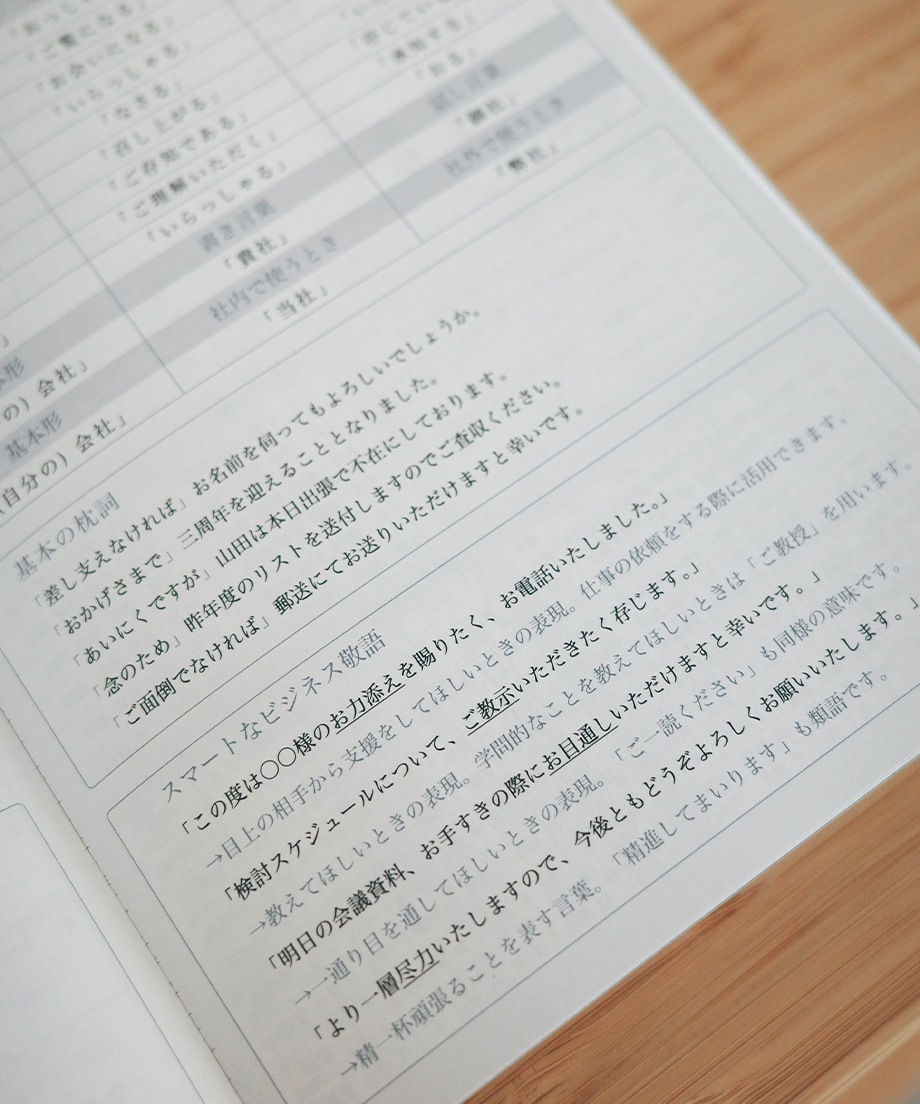 「ご覧になる」
「お会いになる」
「いらっしゃる」
「なさる」
「召し上がる」
「ご存知である」
「ご理解いただく」
「いらっしゃる」
「承知する」
「おる」
書き言葉
話し言葉
「貴社」
「御社」
社内で使うとき
社外で使うとき
「当社」
「弊社」
の）会社」
基本形
（自分の）会社」
基本の枕詞
「差し支えなければ」お名前を伺ってもよろしいでしょうか。
「おかげさまで」三周年を迎えることとなりました。
「あいにくですが」山田は本日出張で不在にしております。
「念のため」昨年度のリストを送付しますのでご査収ください。
「ご面倒でなければ」郵送にてお送りいただけますと幸いです。
スマートなビジネス敬語
「この度は〇〇様のお力添えを賜りたく、お電話いたしました。」
→目上の相手から支援をしてほしいときの表現。仕事の依頼をする際に活用できます。
「検討スケジュールについて、ご教示いただきたく存じます。」
→教えてほしいときの表現。学問的なことを教えてほしいときは「ご教授」を用います。
「明日の会議資料、お手すきの際にお目通しいただけますと幸いです。」
→一通り目を通してほしいときの表現。「ご一読ください」も同様の意味です。
「より一層尽力いたしますので、今後ともどうぞよろしくお願いいたします。」
→精一杯頑張ることを表す言葉。「精進してまいります」も類語です。